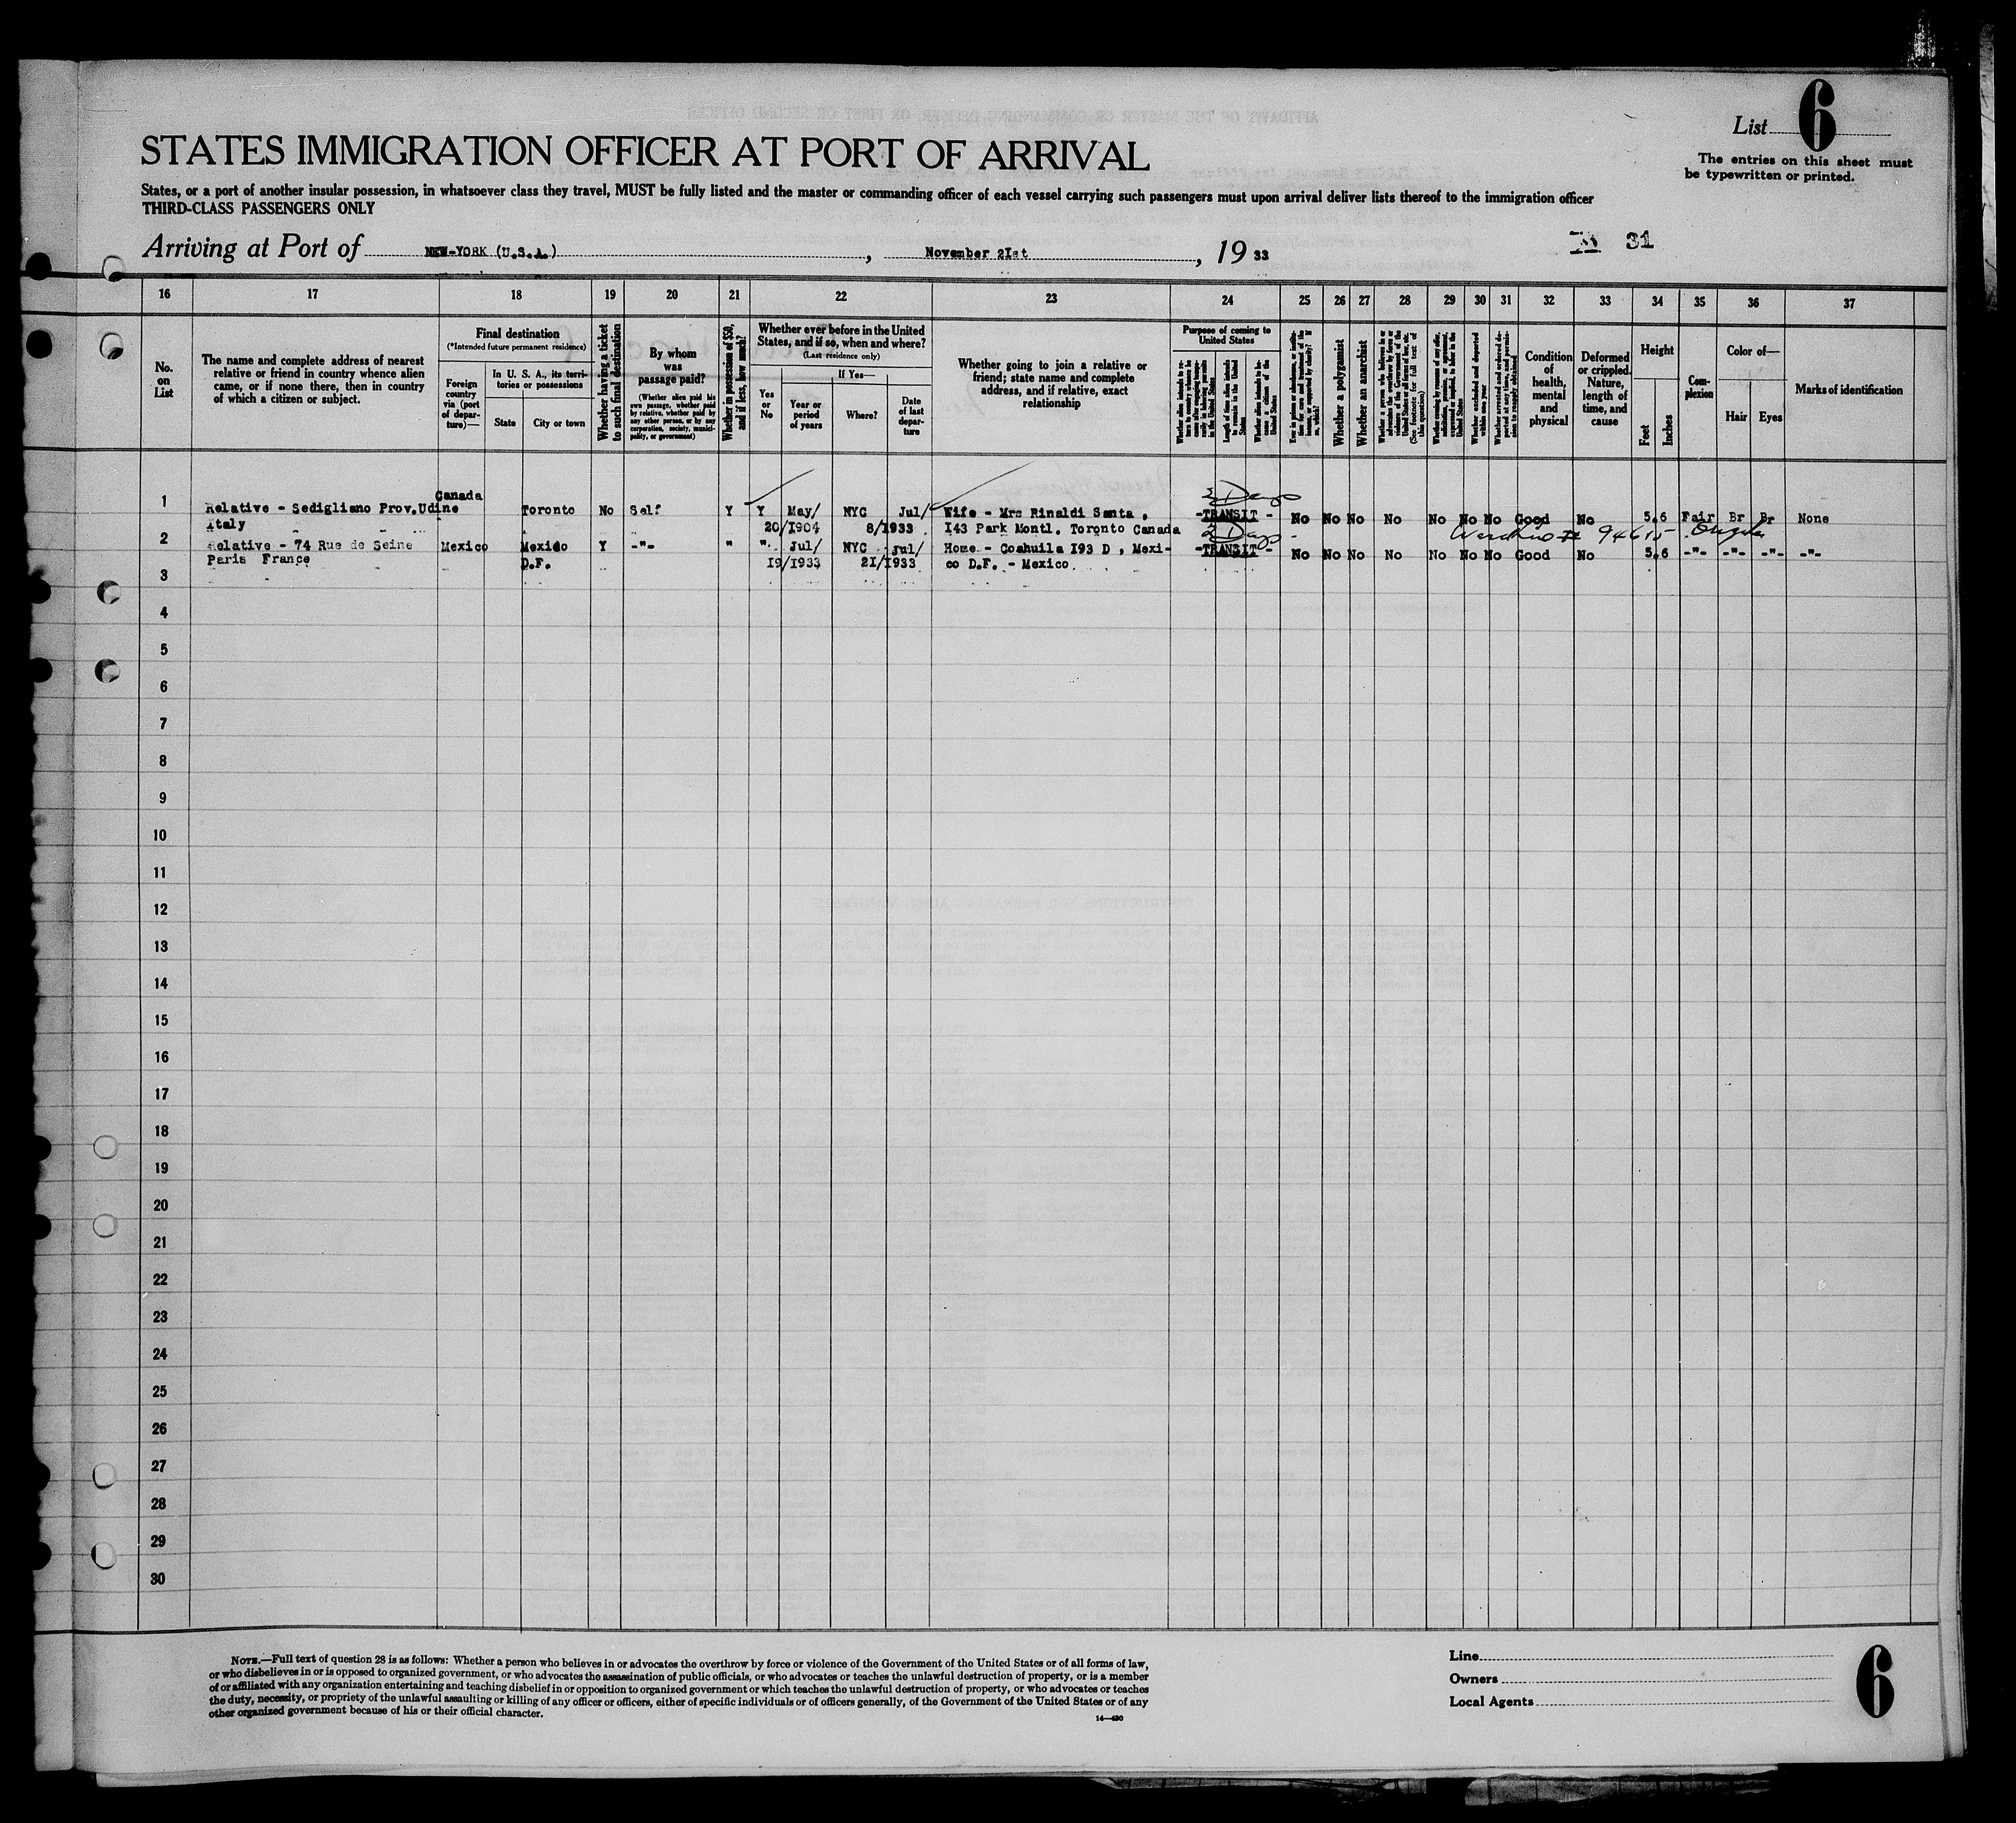 List 6
The entries on this sheet must
be typewritten or printed.
STATES IMMIGRATION OFFICER AT PORT OF ARRIVAL
States, or a port of another insular possession, in whatsoever class they travel, MUST be fully listed and the master or commanding officer of each vessel carrying such passengers must upon arrival deliver lists thereof to the immigration officer
THIRD-CLASS PASSENGERS ONLY
Arriving at Port of NEW-YORK (U.S.A.), November 2Ist, 19 33
31
16 17 18 19 20 21 22 23 24 25 26 27 28 29 30 31 32 33 34 35 36 37
No.
on
List
The name and complete address of nearest
relative or friend in country whence alien
came, or if none there, then in country
of which a citizen or subject.
Final destination
(*Intended future permanent residence)
Foreign
country
via (port
of depar-
ture)—
In U. S. A., its terri-
tories or possessions
State
City or town
Whether having a ticket
to such final destination
By whom
was
passage paid?
(Whether alien paid his
own passage, whether paid
by relative, whether paid by
any other person, or by any
corporation, society, munici-
pality, or government)
Whether in possession of $50,
and if less, how much?
Whether ever before in the United
States, and if so, when and where?
(Last residence only)
Yes
or
No
If Yes—
Year or
period
of years
Where?
Date
of last
depar-
ture
Whether going to join a relative or
friend; state name and complete
address, and if relative, exact
relationship
Purpose of coming to
United States
Length of time alien intends
to remain in the United
States
Whether alien intends to be-
come a citizen of the
United States
Whether a polygamist
Whether an anarchist
Condition
of
health,
mental
and
physical
Deformed
or crippled.
Nature,
length of
time, and
cause
Height
Feet
Inches
Com-
plexion
Color of—
Hair
Eyes
Marks of identification
Canada 3 Days
1 Relative - Sedigliano Prov.Udine Toronto No Self Y Y May/ NYC Jul/ Wife - Mrs Rinaldi Santa , -TRANSIT - No No No No No No No Good No 5.6 Fair Br Br None
Italy 20/I904 8/I933 I43 Park Montl. Toronto Canada
2 Days 94615
2 Relative - 74 Rue de Seine Mexico Mexico Y -"- " " Jul/ NYC Jul/ Home - Coahuila I93 D , Mexi- -TRANSIT - No No No No No No No Good No 5.6 -"- -"- -"- -"-
Paris France D.F. I9/I933 2I/I933 co D.F. - Mexico
3
4
5
6
7
8
9
10
11
12
13
14
15
16
17
18
19
20
21
22
23
24
25
26
27
28
29
30
NOTE.—Full text of question 28 is as follows: Whether a person who believes in or advocates the overthrow by force or violence of the Government of the United States or of all forms of law,
or who disbelieves in or is opposed to organized government, or who advocates the assassination of public officials, or who advocates or teaches the unlawful destruction of property, or is a member
of or affiliated with any organization entertaining and teaching disbelief in or opposition to organized government or which teaches the unlawful destruction of property, or who advocates or teaches
the duty, necessity, or propriety of the unlawful assaulting or killing of any officer or officers, either of specific individuals or of officers generally, of the Government of the United States or of any
other organized government because of his or their official character.
14—430
Line
Owners
Local Agents
6